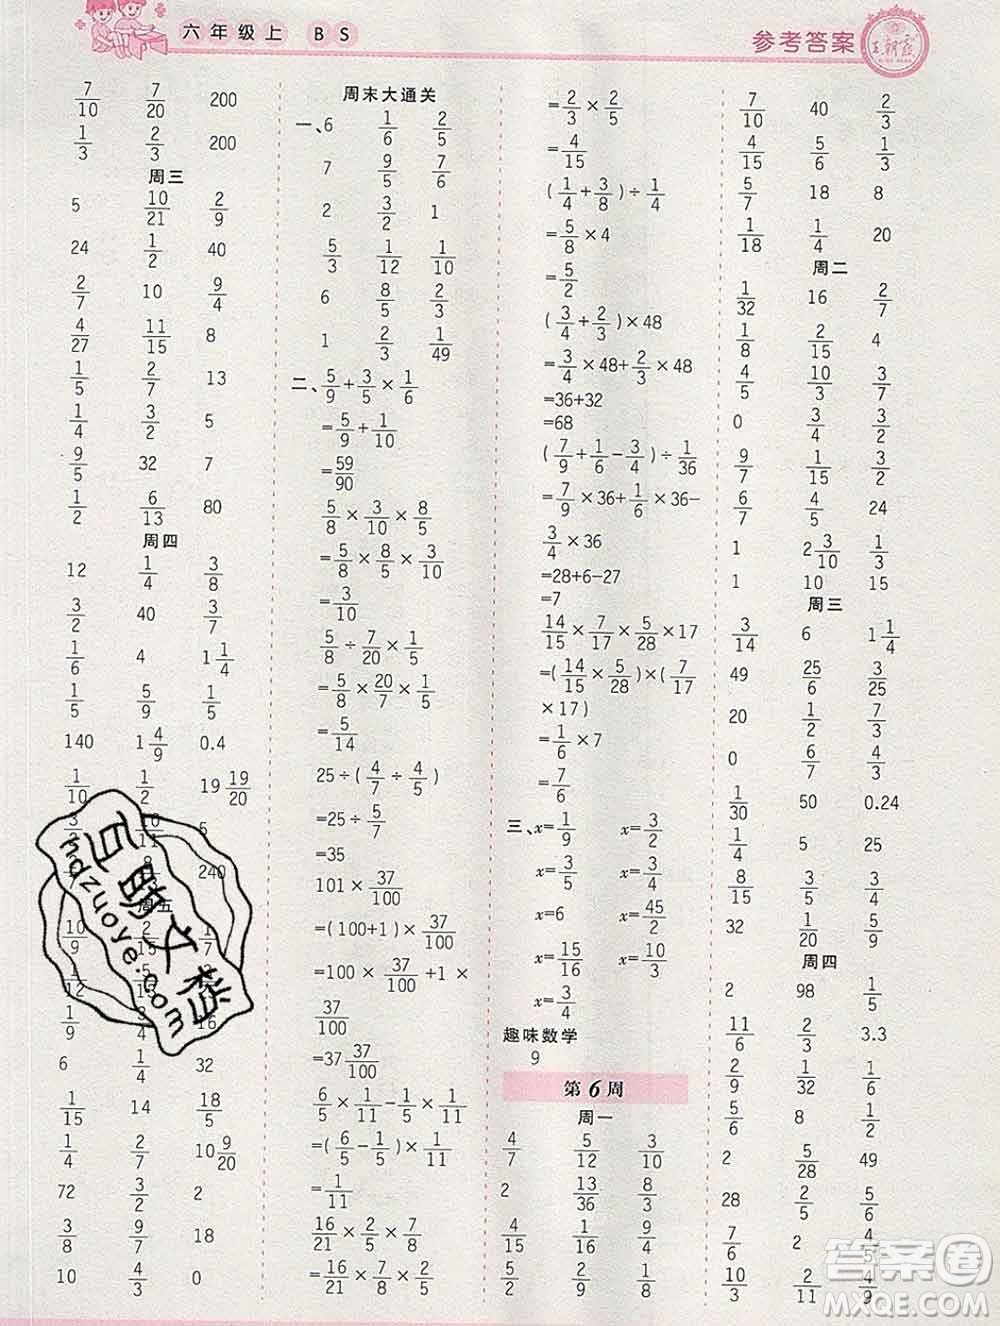 六年级上 BS
参考答案
王朝霞
7/10 7/20 200
1/3 2/3 200
周三
5 10/21 2/9
24 1/2 40
2/7 10 9/4
4/27 11/15 8
1/5 2/7 13
1/4 3/2 5
9/5 32 7
1/2 6/13 80
周四
12 1/4 3/8
3/2 40 3/7
1/6 4 1 1/4
1/5 5/9 1/5
140 1 4/9 0.4
1/10 1/2 19 19/20
240
周五
1/9
6 32
1/15 14 18/5
1/4 2/7 10 9/20
72 3/2 2
3/8 9/7 18
10 4/3 0
周末大通关
一、6 1/6 2/5
7 9/5 7/6
2 3/2 1
5/3 1/12 1/10
6 8/5 1/9
1 2/3 1/49
二、5/9+3/5×1/6
=5/9+1/10
=59/90
5/8×3/10×8/5
=5/8×8/5×3/10
=3/10
5/8÷7/20×1/5
=5/8×20/7×1/5
=5/14
25÷(4/7÷4/5)
=25÷5/7
=35
101×37/100
=(100+1)×37/100
=100×37/100+1×
37/100
=37 37/100
6/5×1/11-1/5×1/11
=(6/5-1/5)×1/11
=1/11
16/21×2/5×7/8
=16/21×7/8×2/5
=2/3×2/5
=4/15
(1/4+3/8)÷1/4
=5/8×4
=5/2
(3/4+2/3)×48
=3/4×48+2/3×48
=36+32
=68
(7/9+1/6-3/4)÷1/36
=7/9×36+1/6×36-
3/4×36
=28+6-27
=7
14/15×7/17×5/28×17
=(14/15×5/28)×(7/17
×17)
=1/6×7
=7/6
三、x=1/9 x=3/2
x=3/5 x=3/4
x=6 x=45/2
x=15/16 x=3/10
x=3/4
趣味数学
9
第6周
周一
4/7 5/12 3/10
2 13/36 8/3
4/15 1/9 9/16
5/2 2/9 1/8
7/10 40 2/3
4/15 5/6 1/3
5/7 18 8
1/18 1/4 20
周二
1/32 16 2/7
1/8 2/15 4
4/5 10/3 3/7
0 1/4 2/3
9/7 1/15 5/2
6/7 4/5 24
1 2 3/10 1/3
1 10 15
周三
3/14 6 1 1/4
49 25/6 3/25
20 1/2 7/3
0 7/6 2/5
1/30 50 0.24
4/9 5/2 25
8/15 4/5 7/8
32 1/20 5/9
周四
2 98 1/5
11/6 3/2 3.3
2/9 1/32 1/6
5/6 8 6/7
2 5/28 49
28 2/25 4/5
7/6 2 4/5
7/10 2/11 4/9
百盼文档
hdznoye.com
答案圈
MXQE.COM